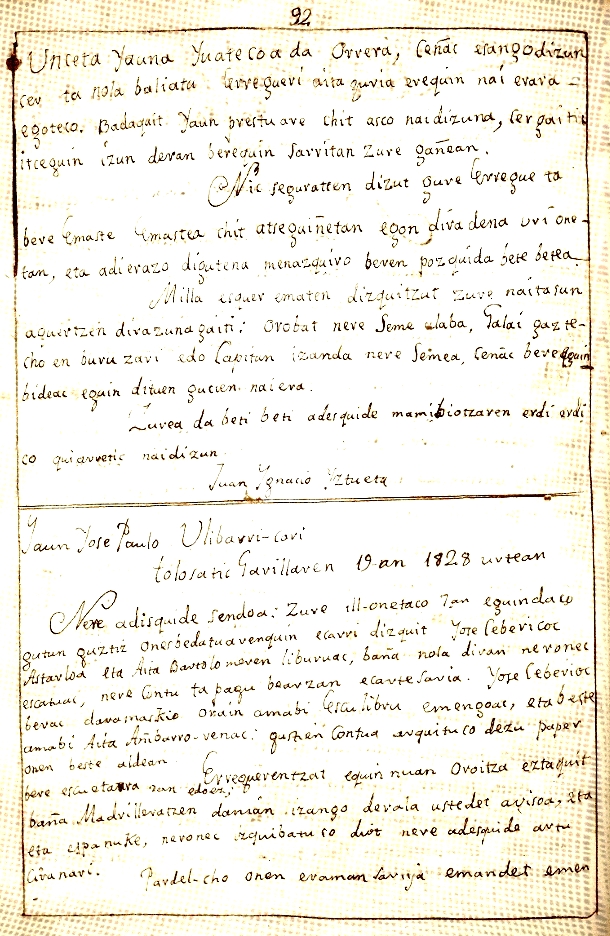 92
Unceta Yauna Yuatecoa da Orrera, Ceñac esangodizun
cer ta nola baliatu Erregueri aita guria erequin nai evara-
egoteco. Badaquit Yaun prestu ave chit asco naidizuna, cergaitic
itceguin izun deran berequin sarritan zure gañean.
Nic seguratten dizut gure Erregue ta
bere Emaste Emastea chit atseguiñetan egon diradena uri one-
tan, eta adierazo digutena menazquiro beren pozquida bete betea.
Milla esquer ematen dizquitzut zure naitasun
aguertzen dirazunagaiti: orobat nere seme alaba, Galai gazte-
cho en buruzari edo Capitan izanda nere semea, Ceñac bereeguin
bideac eguin dituen gucien naiera.
Zurea da beti beti adesquide mamibiotzaren erdi erdi
co quiarretic naidizun
Juan Ygnacio Yztueta
Yaun Jose Paulo Ulibarri-cori
tolosatic Garillaren 19an 1828 urtean
Nere adisquide sendoa: Zure ill-onetaco 7an eguindaco
gutun guztiz onesbedatuavenquin ecarri dizquit Yose Ceberioc
Astarloa eta Aita Bartolomeren liburuac, baña nola diran neronec
escatuac, nere Contu ta pagu bearzan ecartesaria. Yose Ceberioc
berac daramaskio orain amabi Escu libru emengoac, eta beste
amabi Aita Añibarro-renac: guztien Contua arquituco dezu paper
onen beste aldean.
Erreguerentzat equin nuan Oroitza eztaquit
bere escuetara zan edoez;
baña Madrilleratzen danian izango derala ustedet avisoa, eta
eta espanuke, neronec izquibatuco diot nere adesquide artu
Pardel-cho onen eraman sariya emandet emen